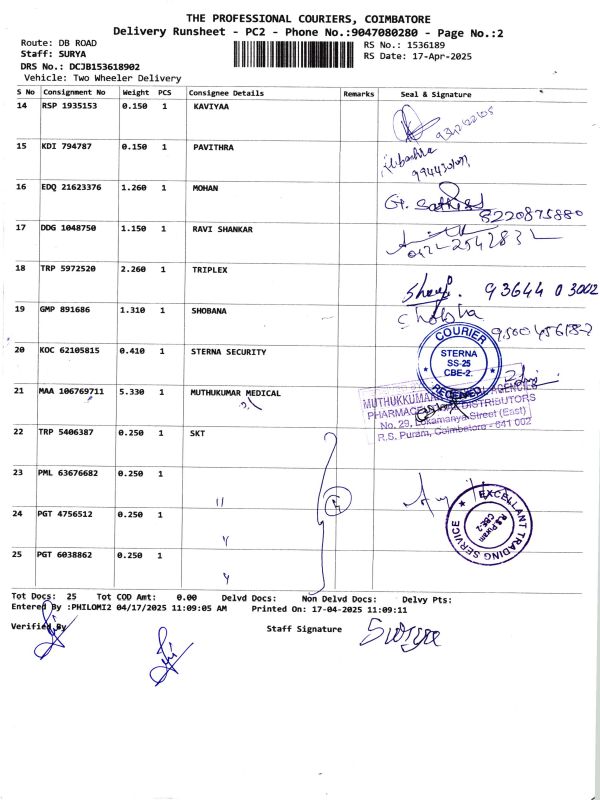 THE PROFESSIONAL COURIERS, COIMBATORE
Delivery Runsheet - PC2 - Phone No.:9047080280 - Page No.:2
Route: DB ROAD
Staff: SURYA
DRS No.: DCJB153618902
Vehicle: Two Wheeler Delivery
RS No.: 1536189
RS Date: 17-Apr-2025
S No Consignment No Weight PCS Consignee Details Remarks Seal & Signature
14 RSP 1935153 0.150 1 KAVIYAA
15 KDI 794787 0.150 1 PAVITHRA
16 EDQ 21623376 1.260 1 MOHAN
8220875880
17 DDG 1048750 1.150 1 RAVI SHANKAR
18 TRP 5972520 2.260 1 TRIPLEX
93644 03002
19 GMP 891686 1.310 1 SHOBANA
20 KOC 62105815 0.410 1 STERNA SECURITY
COURIER
STERNA
SS-25
CBE-2.
RECEIVED
21 MAA 106769711 5.330 1 MUTHUKUMAR MEDICAL
MUTHUKKUMARAN AGENCIES
PHARMACEUTICAL DISTRIBUTORS
No. 29, Lokamanya Street (East)
R.S. Puram, Coimbatore - 641 002
22 TRP 5406387 0.250 1 SKT
23 PML 63676682 0.250 1
"
24 PGT 4756512 0.250 1
"
25 PGT 6038862 0.250 1
"
EXCELLANT TRADING SERVICE
R.S.Puram
CBE-2
Tot Docs: 25 Tot COD Amt: 0.00 Delvd Docs: Non Delvd Docs: Delvy Pts:
Entered By :PHILOMI2 04/17/2025 11:09:05 AM Printed On: 17-04-2025 11:09:11
Verified By
Staff Signature
Surya